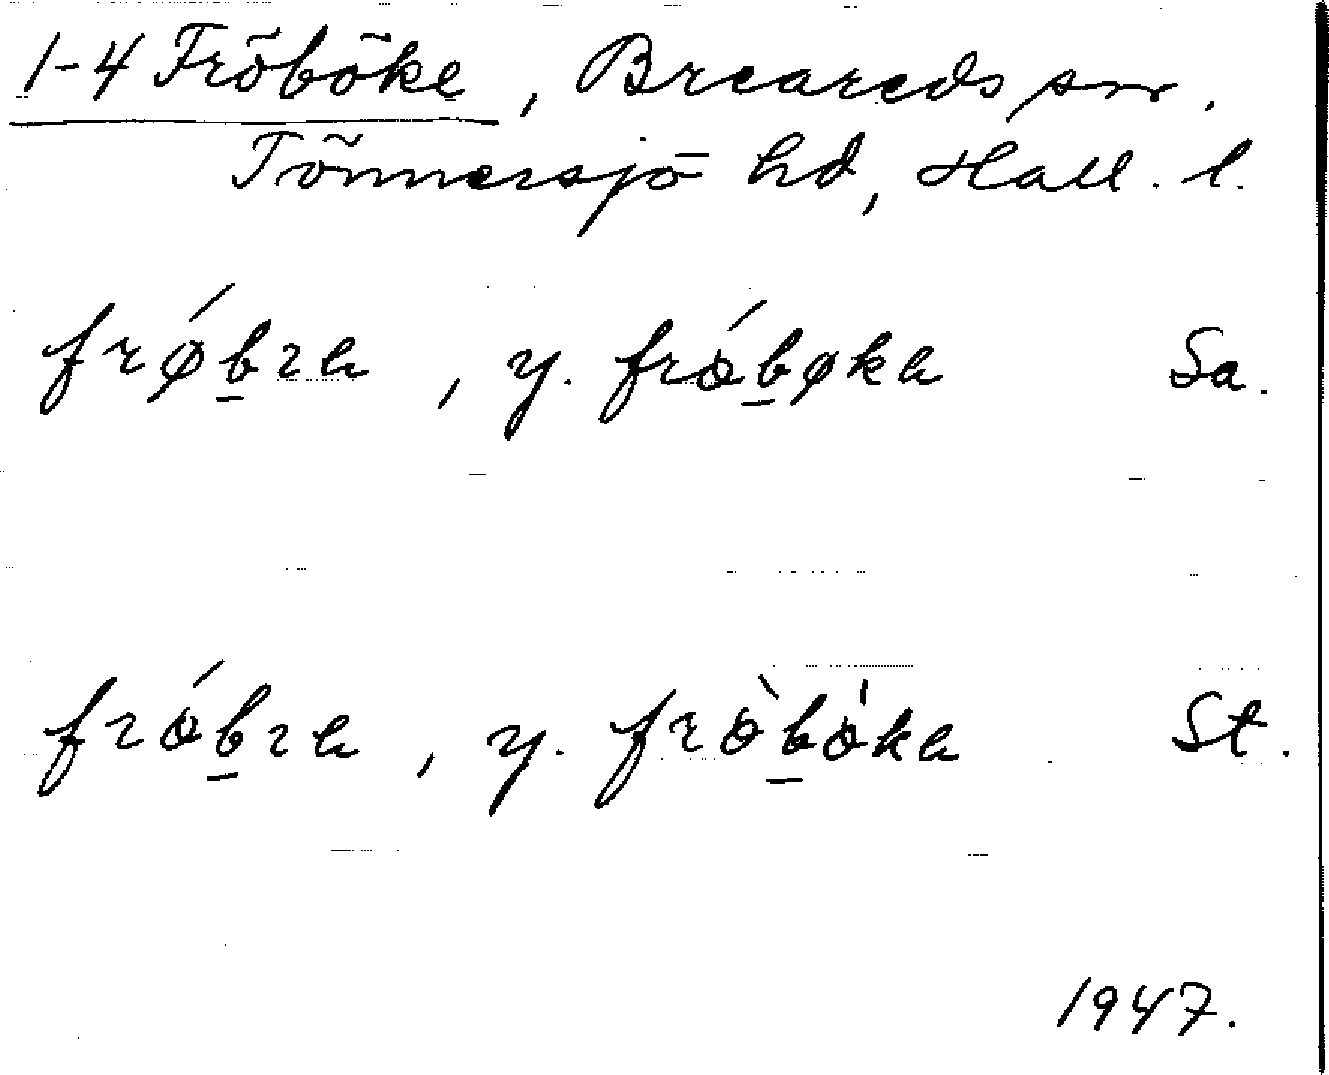 1-4 Fröböke, Breareds sn.
Tönnersjö hd, Hall. l.
frǿbra, y. frǿbøka Sa.
fróbra, y. fròbóka St.
1947.